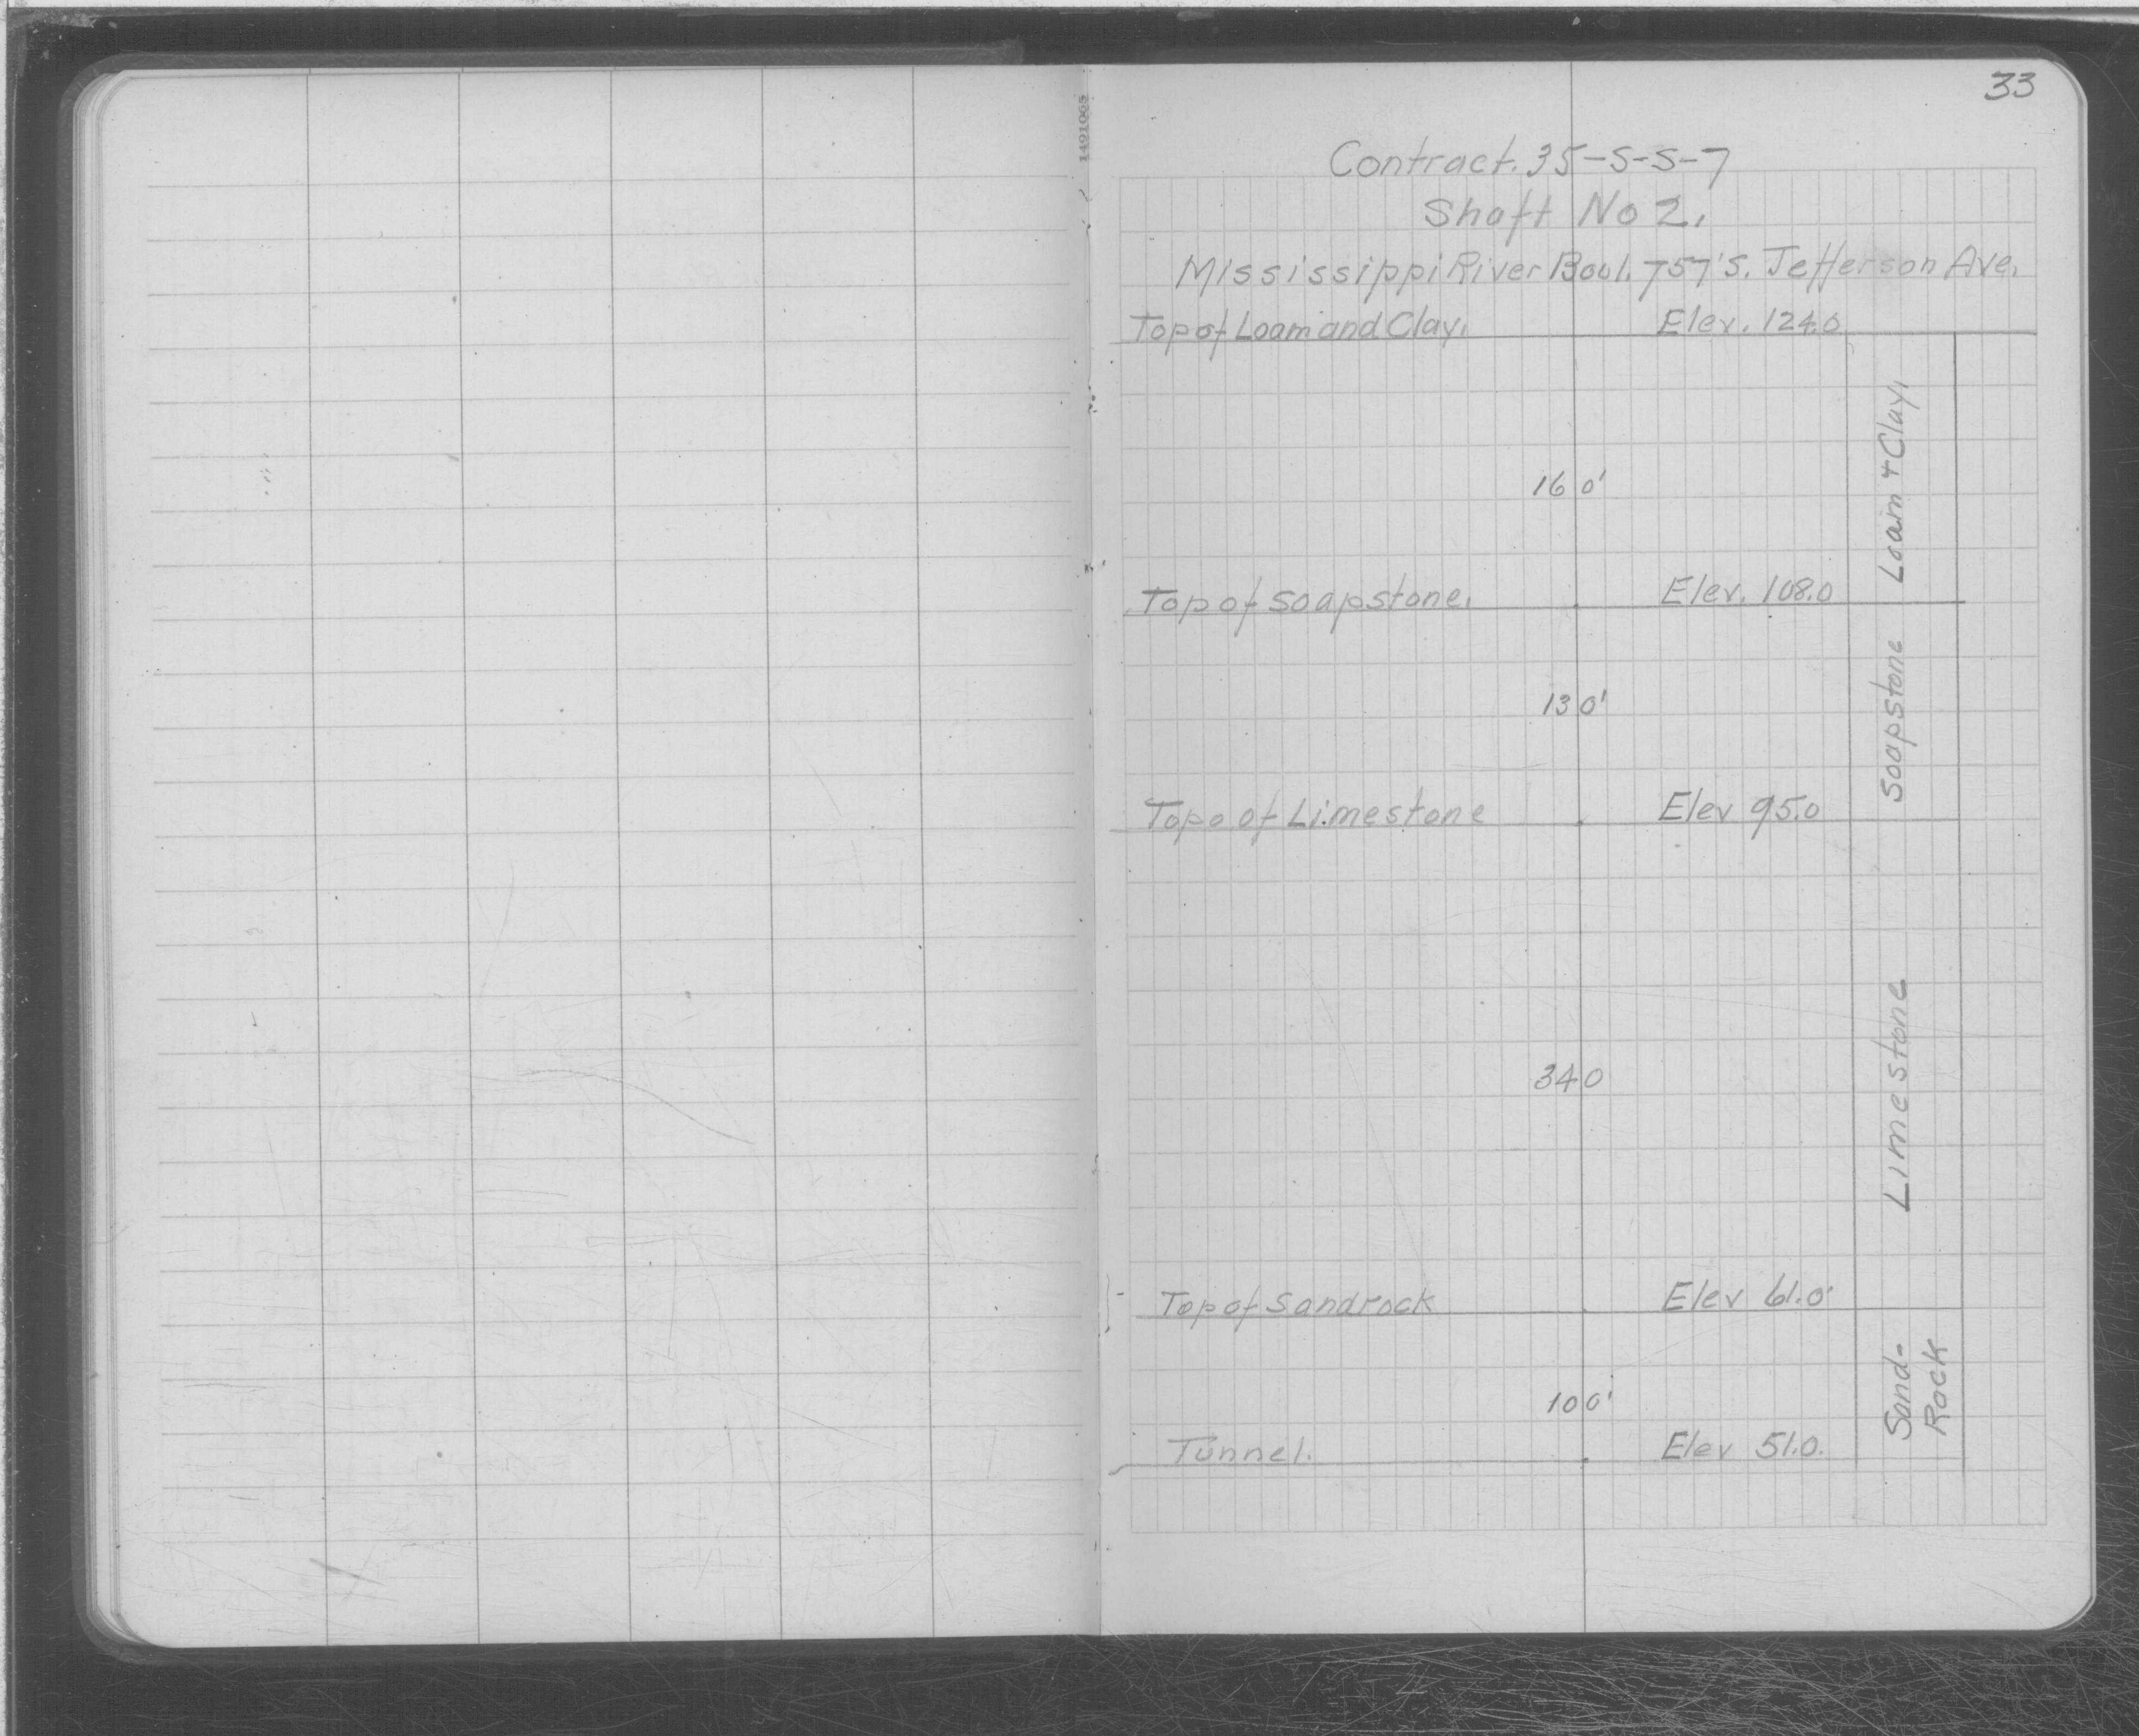 33
1491065
Contract. 35-S-S-7
Shaft No 2.
Mississippi River Boul. 757' S. Jefferson Ave.
Top of Loam and Clay. Elev. 124.0
16 0'
Loam + Clay.
Top of Soapstone. Elev. 108.0
13 0'
Soapstone
Topo of Limestone Elev 95.0
34 0
Limestone
Top of Sandrock Elev 61.0
10 0'
Sand-
Rock
Tunnel. Elev 51.0.